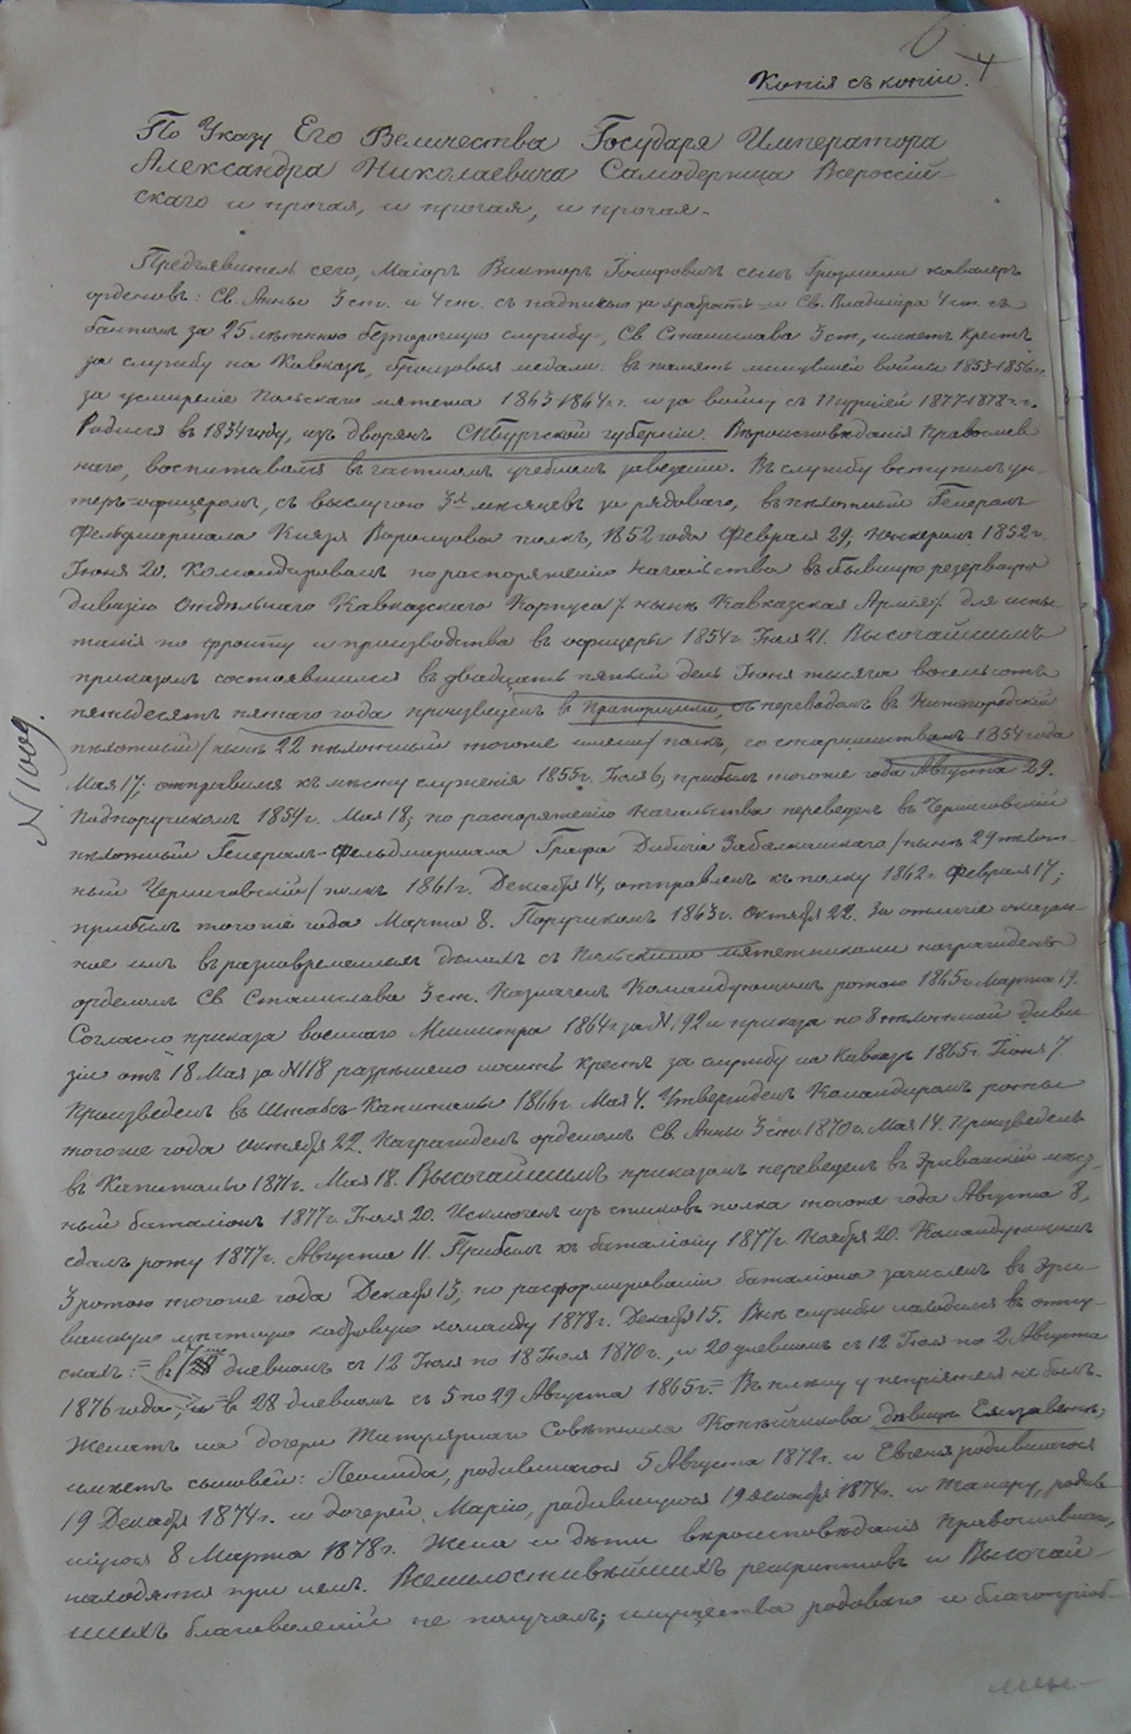 6
4
Копія съ копіи.
По Указу Его Величества Государя Императора
Александра Николаевича Самодержца Всероссій-
скаго и прочая, и прочая, и прочая.
Предъявитель сего, Маіоръ Викторъ Іосифовичъ сынъ кавалеръ
орденовъ: Св. Анны 3 ст. и 4 ст. съ надписью за храбрость и Св. Владиміра 4 ст. съ
бантомъ за 25 лѣтнюю безпорочную службу, Св. Станислава 3 ст., имѣетъ крестъ
за службу на Кавказѣ, бронзовыя медали: въ память минувшей войны 1853-1856 г.
за усмиреніе Польскаго мятежа 1863-1864 г.г. и за войну съ Турціей 1877-1878 г.г.
Родился въ 1834 году, изъ дворянъ СПБургской губерніи. Вѣроисповѣданія Православ-
наго, воспитывался въ частномъ учебномъ заведеніи. Въ службу вступилъ ун-
теръ-офицеромъ, съ выслугою 3х мѣсяцевъ за рядоваго, въ пѣхотный Генералъ-
Фельдмаршала Князя Воронцова полкъ, 1852 года Февраля 29; юнкеромъ 1852 г.
Іюня 20. Командированъ по распоряженію начальства въ бывшую резервную
дивизію Отдѣльнаго Кавказскаго Корпуса /нынѣ Кавказская Армія/ для испы-
танія по фронту и производства въ офицеры 1854 г. Іюля 21. Высочайшимъ
приказомъ состоявшимся въ двадцать пятый день Іюня тысяча восемьсотъ
пятьдесятъ пятаго года произведенъ въ Прапорщики, съ переводомъ въ Нижегородскій
пѣхотный /нынѣ 22 пѣхотный тогоже имени/ полкъ, со старшинствомъ 1854 года
Мая 17; отправился къ мѣсту служенія 1855 г. Іюля 6; прибылъ тогоже года Августа 29.
Подпоручикомъ 1859 г. Мая 18; по распоряженію начальства переведенъ въ Черниговскій
пѣхотный Генералъ-Фельдмаршала Графа Дибича Забалканскаго /нынѣ 29 пѣхот-
ный Черниговскій/ полкъ 1861 г. Декабря 14, отправленъ къ полку 1862 г. Февраля 17;
прибылъ тогоже года Марта 8. Поручикомъ 1863 г. Октября 22. За отличіе оказан-
ное имъ въ разновременныхъ дѣлахъ съ Польскими мятежниками награжденъ
орденомъ Св. Станислава 3 ст. Назначенъ Командующимъ ротою 1865 г. Марта 19.
Согласно приказа военнаго Министра 1864 г. за № 192 и приказа по 8 пѣхотной диви-
зіи отъ 18 Мая за № 118 разрѣшено носить крестъ за службу на Кавказѣ 1865 г. Іюня 7
Произведенъ въ Штабсъ-Капитаны 1866 г. Мая 4. Утвержденъ Командиромъ роты
тогоже года Октября 22. Награжденъ орденомъ Св. Анны 3 ст. 1870 г. Мая 14. Произведенъ
въ Капитаны 1871 г. Мая 18. Высочайшимъ приказомъ переведенъ въ Эриванскій мѣст-
ный баталіонъ 1877 г. Іюля 20. Исключенъ изъ списковъ полка тогоже года Августа 8,
сдалъ роту 1877 г. Августа 11. Прибылъ къ баталіону 1877 г. Ноября 20. Командующимъ
3 ротою тогоже года Декабря 13; по расформированіи баталіона зачисленъ въ Эри-
ванскую мѣстную кадровую команду 1878 г. Декабря 15. Внѣ службы находился въ отпу-
скахъ: въ дневномъ съ 12 Іюля по 18 Іюля 1870 г., и 20 дневномъ съ 12 Іюля по 2 Августа
1876 года, и въ 28 дневномъ съ 5 по 29 Августа 1865 г. Въ плѣну у непріятеля не былъ.
Женатъ на дочери Титулярнаго Совѣтника Копѣйчикова дѣвицѣ Елизаветѣ;
имѣетъ сыновей: Леонида, родившагося 5 Августа 1872 г. и Евгенія родившагося
19 Декабря 1874 г. и дочерей, Марію, родившуюся 19 Декабря 1874 г. и Тамару, родив-
шуюся 8 Марта 1878 г. Жена и дѣти вѣроисповѣданія Православнаго,
находятся при немъ. Всемилостивѣйшихъ рескриптовъ и Высочай-
шихъ благоволеній не получалъ; имущества родоваго и благопріоб-
№ 1009.